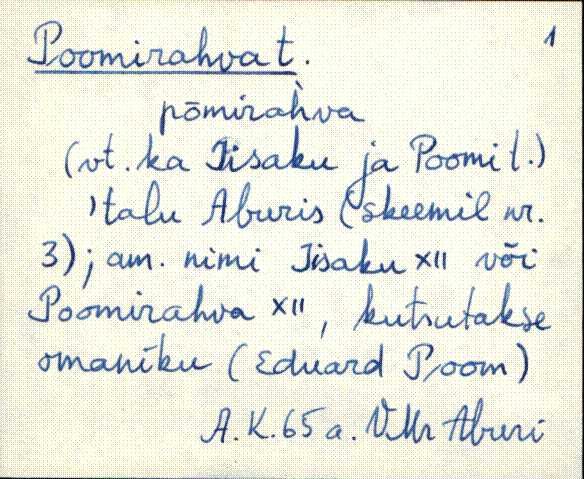 Poomirahva t. 1
pōmirah̀va
(vt. ka Iisaku ja Poomi t.)
'talu Aburis (skeemil nr.
3); am. nimi Iisaku XII või
Poomirahva XII, kutsutakse
omaniku (Eduard Poom)
A.K. 65 a. VMr Aburi